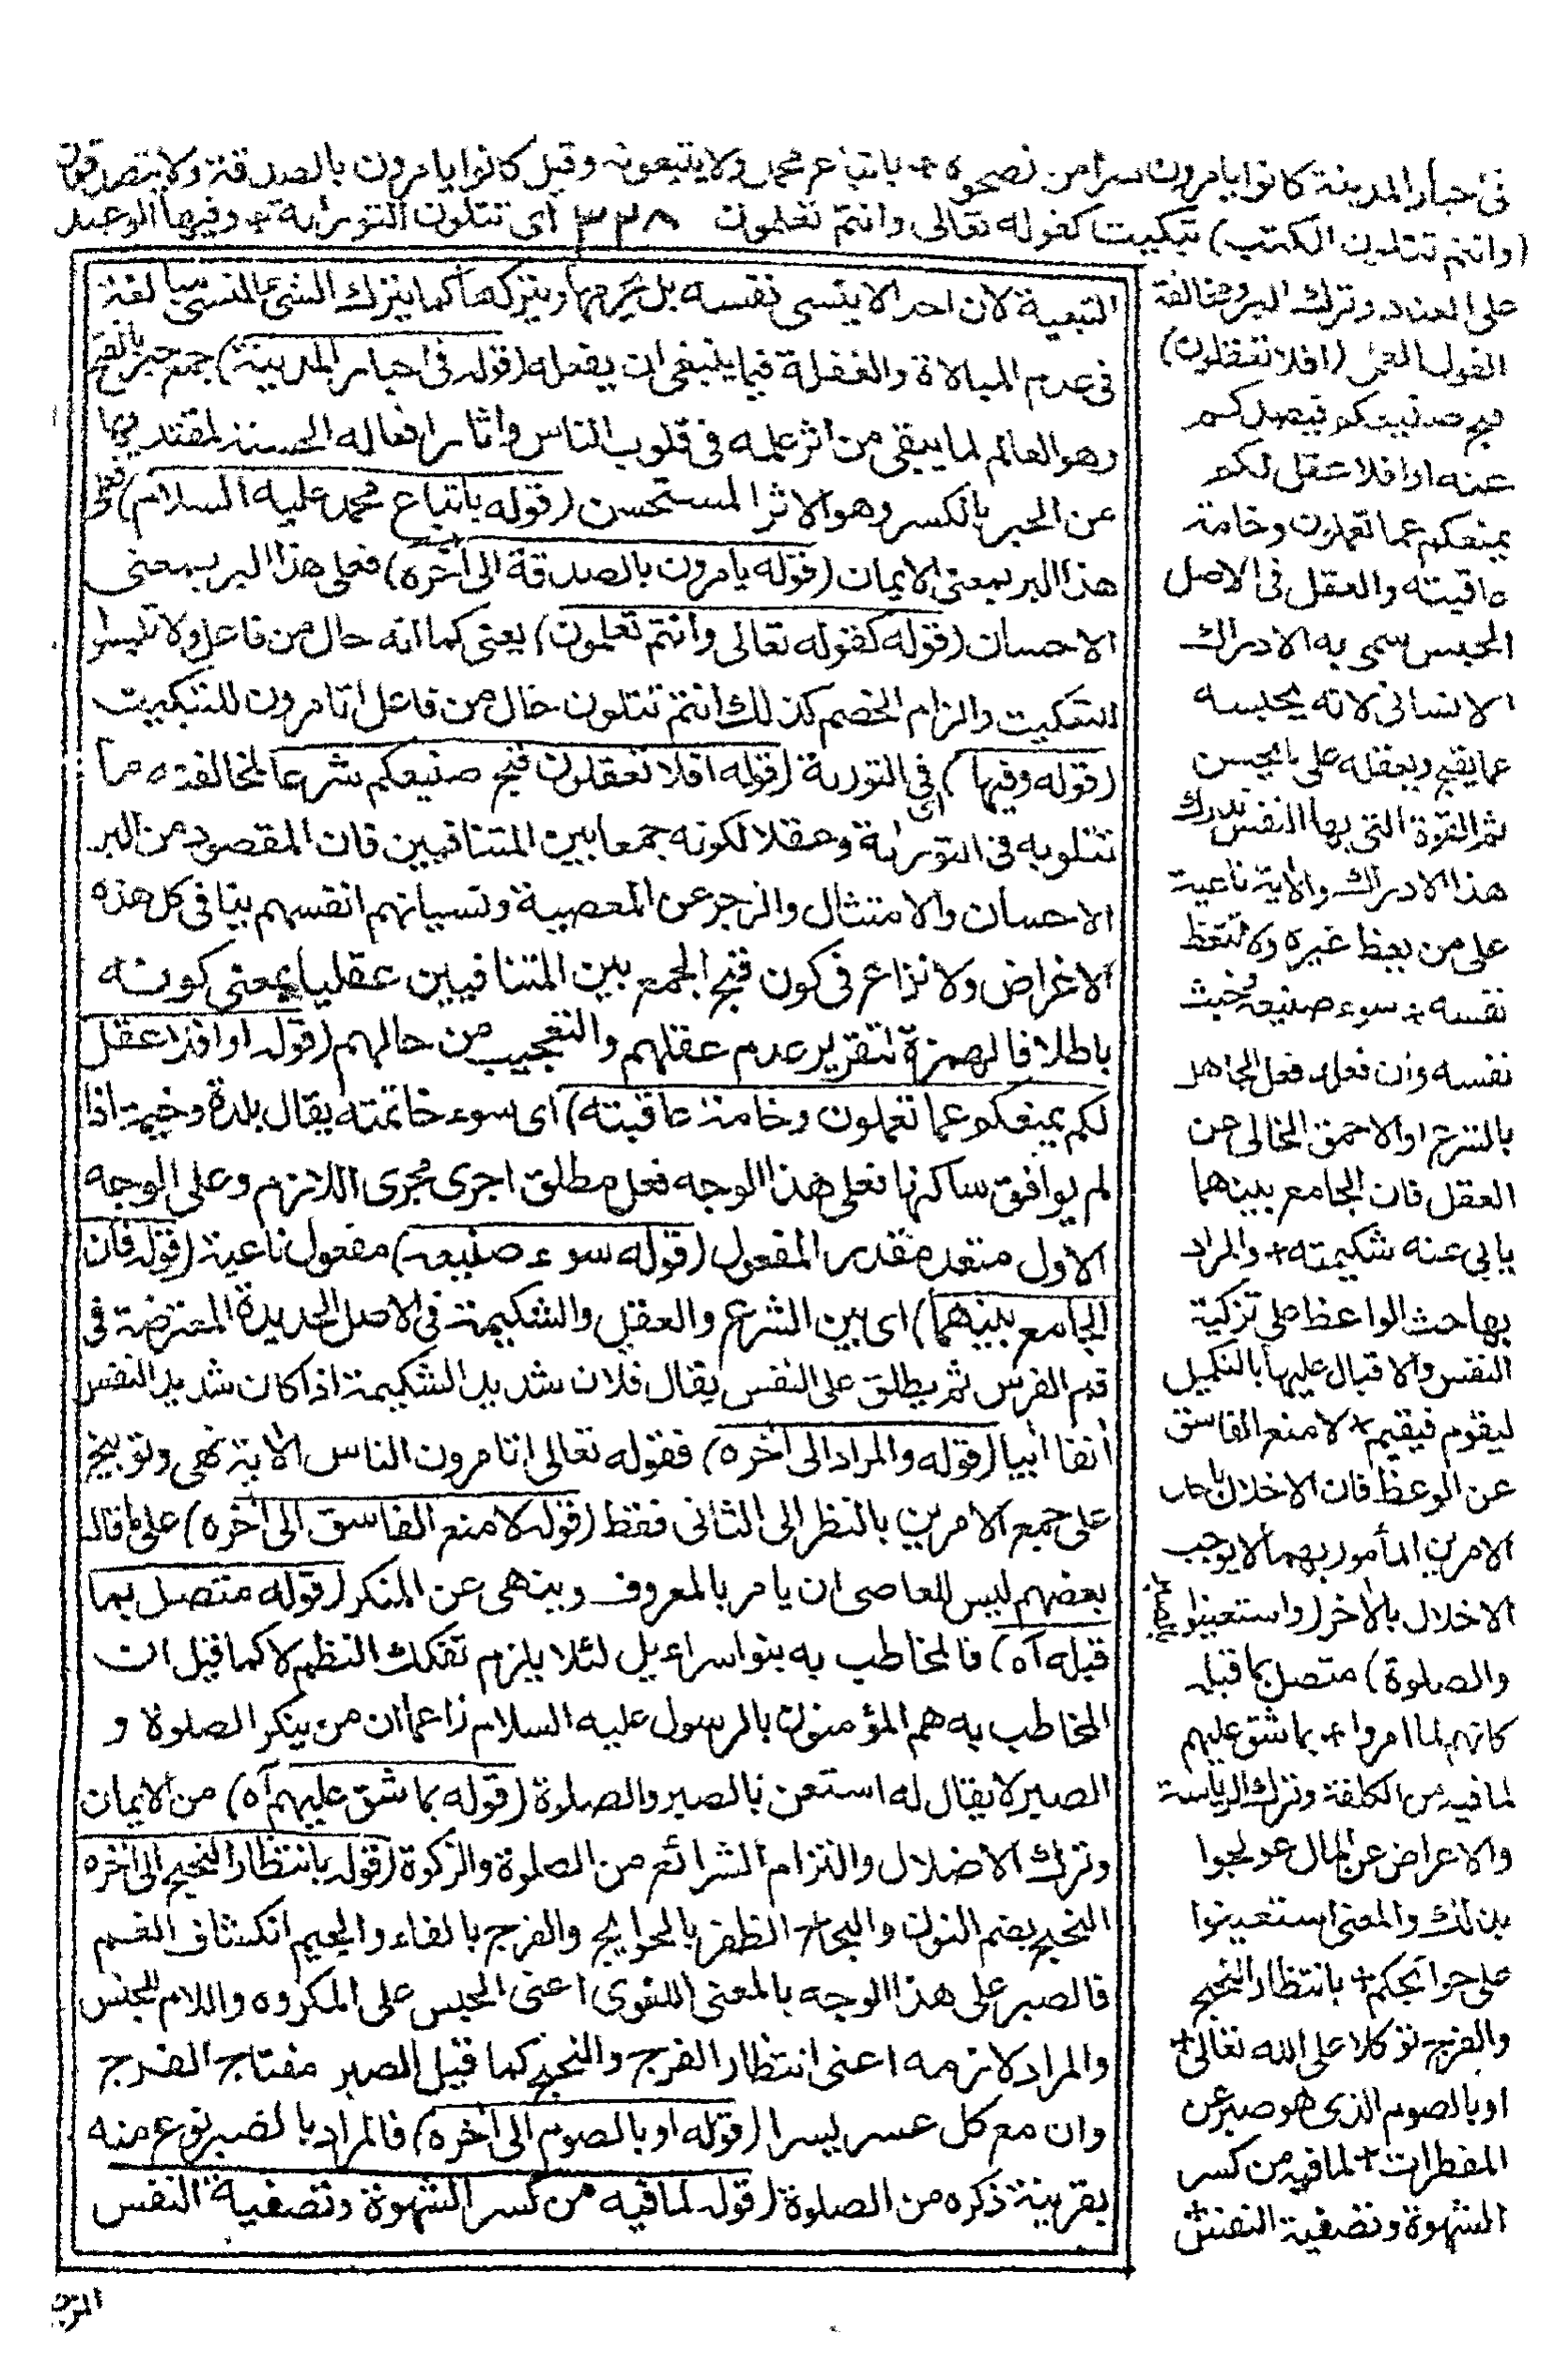 فى احبار المدينة كانوا يامرون سرا من نصحوه + باتباع محمد ولا يتبعونه وقيل كانوا يامرون بالصدقة ولا يتصدقون
(وانتم تتلون الكتب) تبكيت كقوله تعالى وانتم تعلمون ٣٢٨ اى تتلون التورٰىة + وفيها الوعيد
على العناد وترك البر ومخالفة
القول العمل (افلا تعقلون)
قبح صنيعكم فيصدكم
عنه او افلا عقل لكم
يمنعكم عما تعملون وخامة
عاقبته والعقل فى الاصل
الحبس سمى به الادراك
الانسانى لانه يحبسه
عما يقبح ويعقله على ما يحسن
ثم القوة التى بها النفس تدرك
هذا الادراك والاية ناعية
على من يعظ غيره ولا يتعظ
نفسه + سوء صنيعه وخبث
نفسه وان فعله فعل الجاهل
بالشرع او الاحمق الخالى عن
العقل فان الجامع بينهما
يابى عنه شكيمته + والمراد
بها حث الواعظ على تزكية
النفس والاقبال عليها بالتكميل
ليقوم فيقيم + لا منع الفاسق
عن الوعظ فان الاخلال باحد
الامرين المأمور بهما لا يوجب
الاخلال بالأخر (واستعينوا بالصبر
والصلوة) متصل بما قبله
كانهم لما امروا + بما شق عليهم
لما فيه من الكلفة وترك الرياسة
والاعراض عن المال عولجوا
بذلك والمعنى استعينوا
على حوائجكم + بانتظار النجح
والفرج توكلا على الله تعالى +
او بالصوم الذى هو صبر عن
المفطرات + لما فيه من كسر
الشهوة وتصفية النفس
التبعية لان احدا لا ينسى نفسه بل يحرمها ويتركها كما يترك الشئ المنسى مبالغة
فى عدم المبالاة والغفلة فيما ينبغى ان يفعله (قوله فى احبار المدينة) جمع حبر بالفتح
وهو العالم لما يبقى من اثر علمه فى قلوب الناس واثار افعاله الحسنة لمقتدى بها
عن الحبر بالكسر وهو الاثر المستحسن (قوله باتباع محمد عليه السلام) فعلى
هذا البر بمعنى الايمان (قوله يامرون بالصدقة الى أخره) فعلى هذا البر بمعنى
الاحسان (قوله كقوله تعالى وانتم تعلمون) يعنى كما انه حال من فاعل ولا تلبسوا
للتبكيت والزام الخصم كذلك انتم تتلون حال من فاعل اتامرون للتبكيت
(قوله وفيها) اى فى التورية (قوله افلا تعقلون قبح صنيعكم شرعا لمخالفته ما
تتلو به فى التورٰىة وعقلا لكونه جمعا بين المتنافيين فان المقصود من البر
الاحسان والامتثال والزجر عن المعصية ونسيانهم انفسهم ينافى كل هذه
الاغراض ولا نزاع فى كون قبح الجمع بين المتنافيين عقليا بمعنى كونه
باطلا فالهمزة لتقرير عدم عقلهم والتعجيب من حالهم (قوله او افلا عقل
لكم يمنعكم عما تعملون وخامة عاقبته) اى سوء خاتمته يقال بلدة وخيمة اذا
لم يوافق ساكنها فعلى هذا الوجه فعل مطلق اجرى مجرى اللازم وعلى الوجه
الاول متعد مقدر المفعول (قوله سوء صنيعه) مفعول ناعية (قوله فان
الجامع بينهما) اى بين الشرع والعقل والشكيمة فى الاصل الحديدة المعترضة فى
فم الفرس ثم يطلق على النفس يقال فلان شديد الشكيمة اذا كان شديد النفس
أنفا أبيا (قوله والمراد الى أخره) فقوله تعالى اتامرون الناس الأية نهى وتوبيخ
على جمع الامرين بالنظر الى الثانى فقط (قوله لا منع الفاسق الى أخره) على ما قاله
بعضهم ليس للعاصى ان يامر بالمعروف وينهى عن المنكر (قوله متصل بما
قبله أه) فالمخاطب به بنو اسراءيل لئلا يلزم تفكك النظم لا كما قيل ان
المخاطب به هم المؤمنون بالرسول عليه السلام زاعما ان من ينكر الصلوة و
الصبر لا يقال له استعن بالصبر والصلوة (قوله بما شق عليهم أه) من الايمان
وترك الاضلال والتزام الشرائع من الصلوة والزكوة (قوله بانتظار النجح الى أخره
النجح بضم النون والنجاح الظفر بالحوايج والفرج بالفاء والجيم انكشاف الغم
فالصبر على هذا الوجه بالمعنى اللغوى اعنى الحبس على المكروه واللام للجنس
والمراد لازمه اعنى انتظار الفرج والنجح كما قيل الصبر مفتاح الفرج
وان مع كل عسر يسرا (قوله او بالصوم الى أخره) فالمراد بالصبر نوع منه
بقرينة ذكره من الصلوة (قوله لما فيه من كسر الشهوة وتصفية النفس